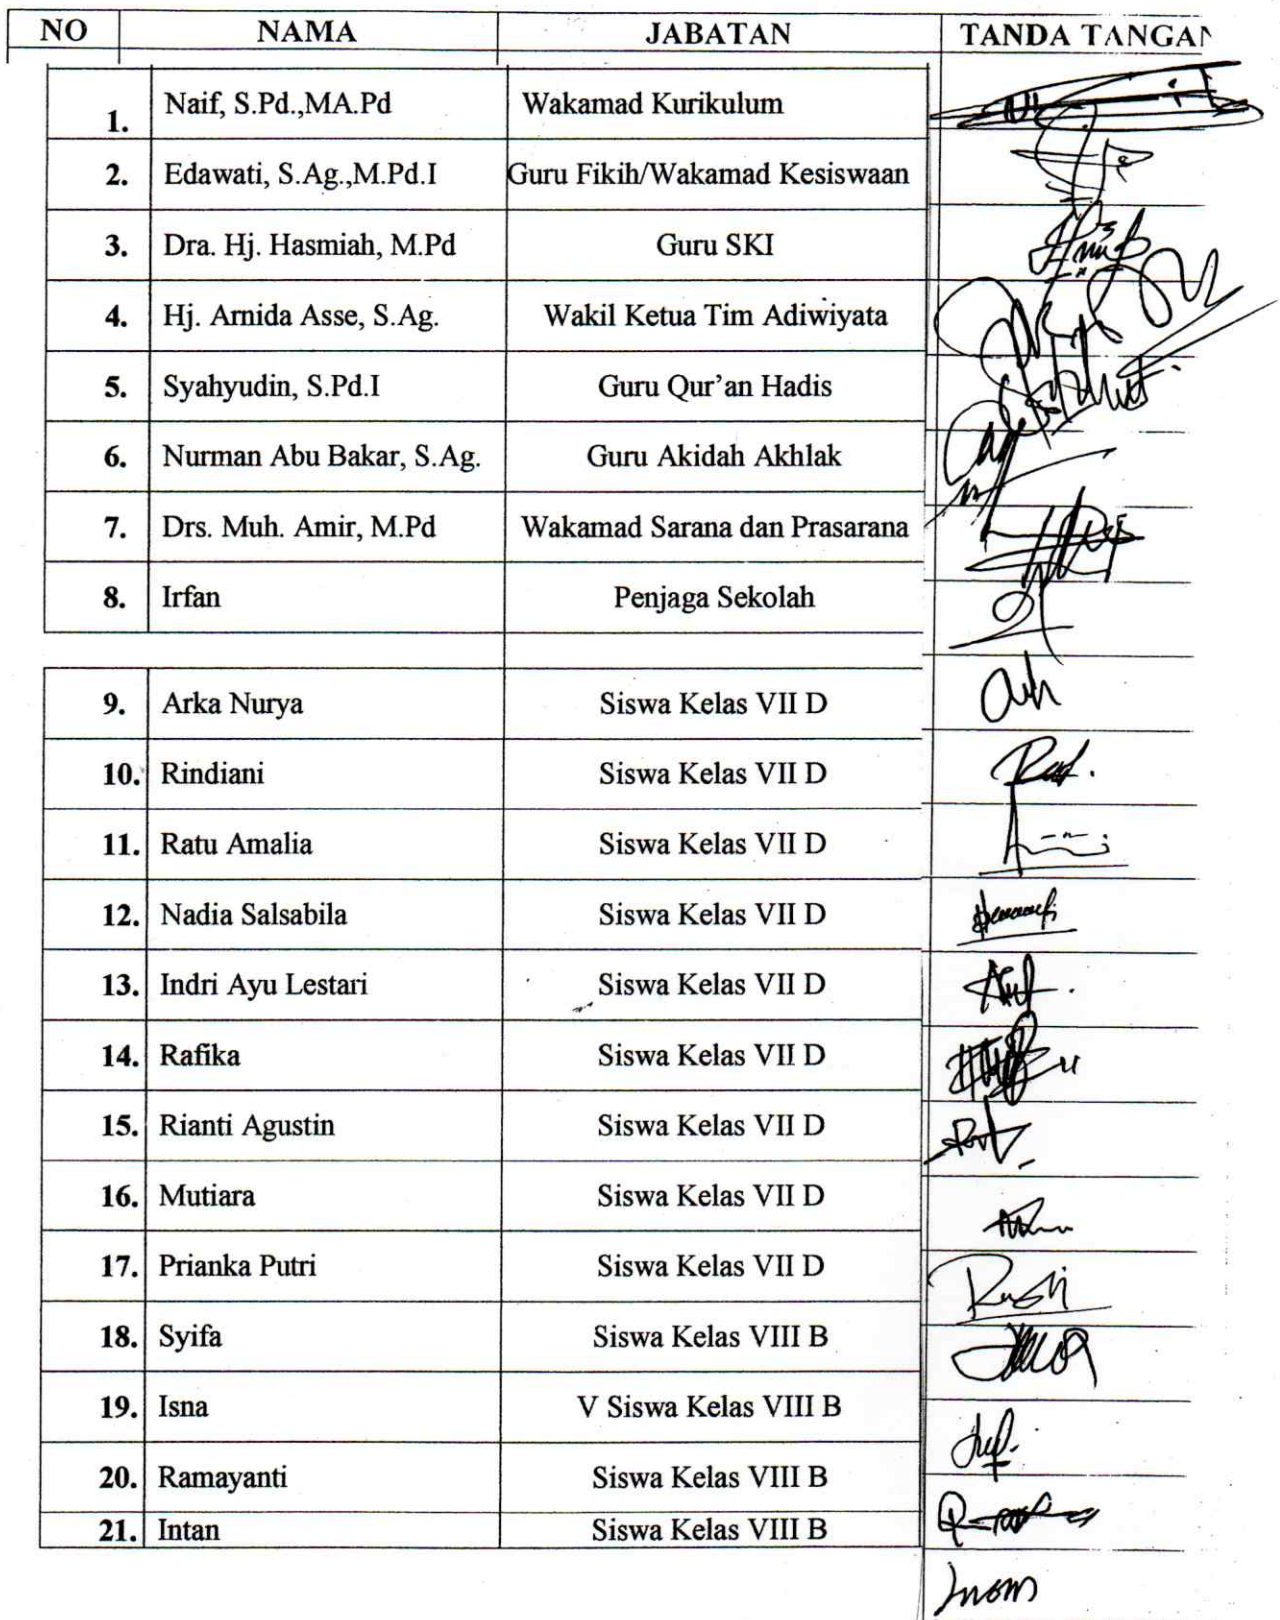 NO NAMA JABATAN TANDA TANGAN
1. Naif, S.Pd.,MA.Pd Wakamad Kurikulum
2. Edawati, S.Ag.,M.Pd.I Guru Fikih/Wakamad Kesiswaan
3. Dra. Hj. Hasmiah, M.Pd Guru SKI
4. Hj. Arnida Asse, S.Ag. Wakil Ketua Tim Adiwiyata
5. Syahyudin, S.Pd.I Guru Qur’an Hadis
6. Nurman Abu Bakar, S.Ag. Guru Akidah Akhlak
7. Drs. Muh. Amir, M.Pd Wakamad Sarana dan Prasarana
8. Irfan Penjaga Sekolah
9. Arka Nurya Siswa Kelas VII D
10. Rindiani Siswa Kelas VII D
11. Ratu Amalia Siswa Kelas VII D
12. Nadia Salsabila Siswa Kelas VII D
13. Indri Ayu Lestari Siswa Kelas VII D
14. Rafika Siswa Kelas VII D
15. Rianti Agustin Siswa Kelas VII D
16. Mutiara Siswa Kelas VII D
17. Prianka Putri Siswa Kelas VII D
18. Syifa Siswa Kelas VIII B
19. Isna V Siswa Kelas VIII B
20. Ramayanti Siswa Kelas VIII B
21. Intan Siswa Kelas VIII B